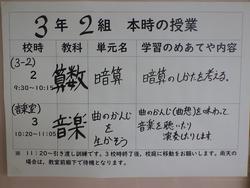 3年2組 本時の授業
校時 教科 単元名 学習のめあてや内容
(3-2)
2
9:30~10:15
算数
暗算
暗算のしかたを考える。
(音楽室)
3
10:20~11:05
音楽
曲のかんじを
生かそう
曲のかんじ(曲想)を味わって
音楽を聴いたり
演奏したりします
※ 11:20~引き渡し訓練です。3校時終了後、校庭に移動をお願いします。雨天の
場合は、教室前廊下で待機となります。